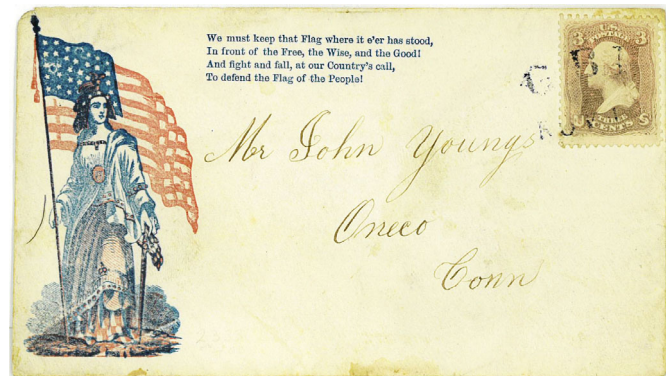 We must keep that Flag where it e'er has stood,
In front of the Free, the Wise, and the Good!
And fight and fall, at our Country's call,
To defend the Flag of the People!
3 U.S. 3
POSTAGE
U THREE S
CENTS
Mr John Youngs
Oneco
Conn